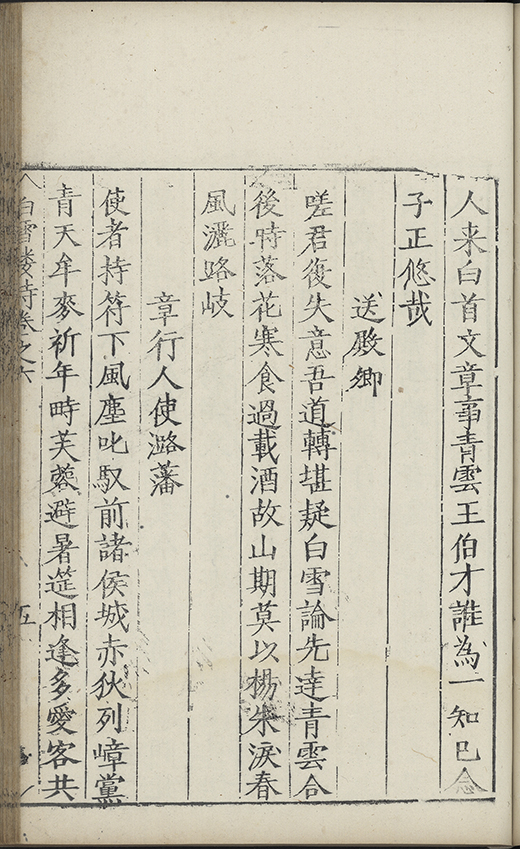 人来白首文章事青雲王伯才誰為一知巳念
子正悠哉
送殿卿
嗟君復失意吾道轉堪疑白雪論先達青雲合
後時落花寒食過載酒故山期莫以楊朱淚春
風灑路岐
章行人使潞藩
使者持符下風塵叱馭前諸侯城赤狄列嶂黨
青天牟麥祈年時芙蓉避暑筵相逢多愛客共
白雪樓詩卷之六
五